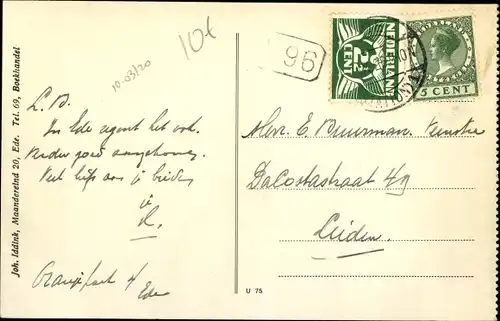 10€
10-03/20
96
NEDERLAND
2½
CENT
5 CENT
L.B.
In Ede regent het ook.
Verder goed
Veel liefs aan je beiden
je
Oranjepark 4
Ede
Joh. Iddink, Maandereind 20, Ede. Tel. 69, Boekhandel
U 75
Mevr. E. Buurman.
DaCostastraat 49
Leiden.